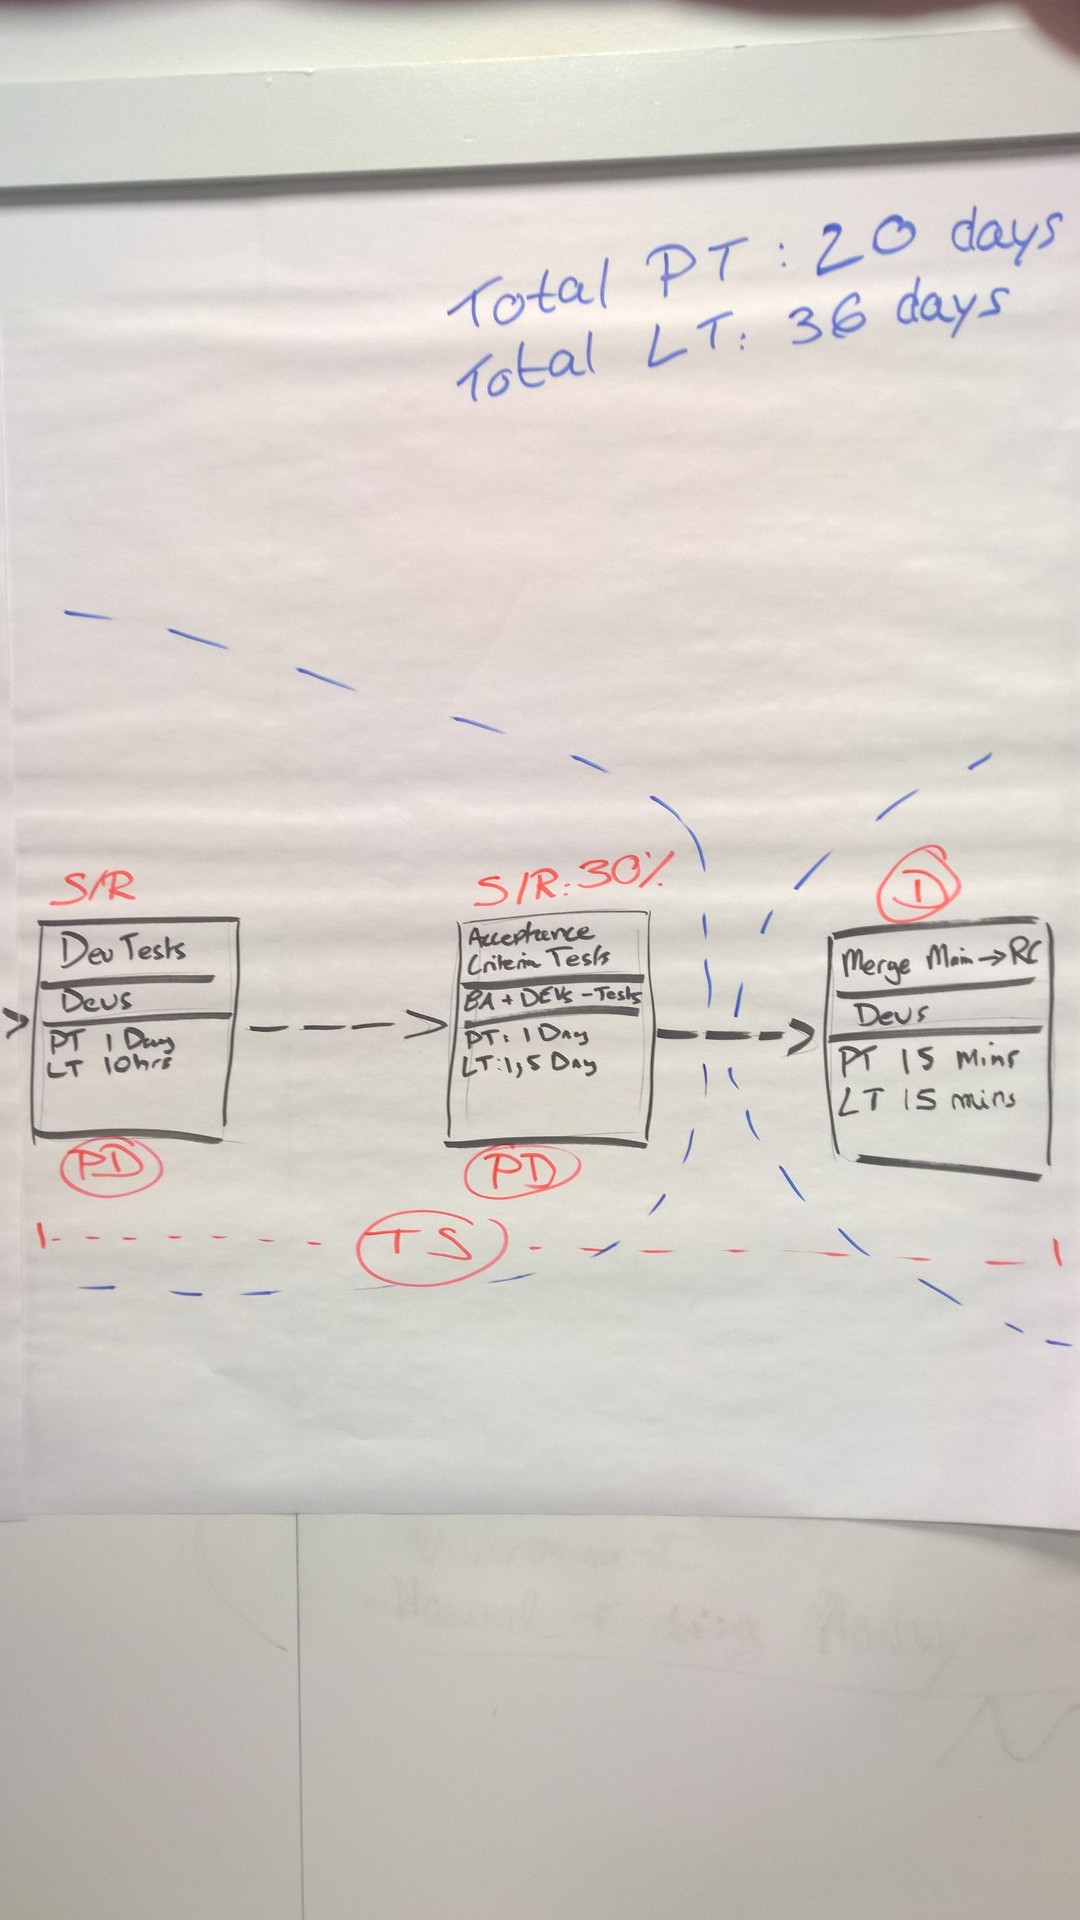 Total PT: 20 days
Total LT: 36 days
S/R
Dev Tests
Devs
PT 1 Day
LT 10hrs
PD
S/R: 30%
Acceptance
Criteria Tests
BA + DEVs - Tests
PT: 1 Day
LT: 1,5 Day
PD
D
Merge Main → RC
Devs
PT 15 mins
LT 15 mins
TS